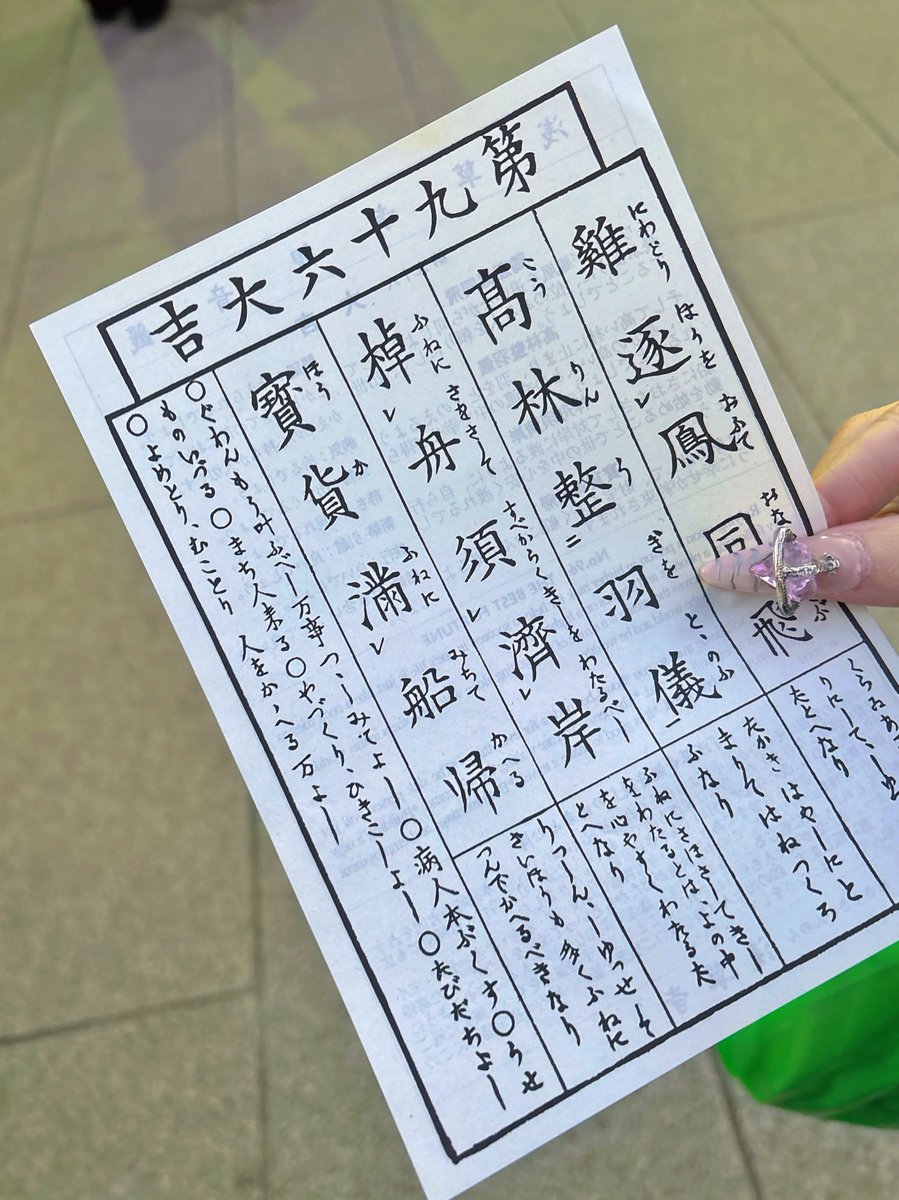 第九十六大吉
にわとり ほうを おふて
雞逐鳳同飛
くらゐあ
りにして、
たとへなり
こう りん う ぎを とゝのふ
高林整羽儀
たかきはやしにと
まりてはねつくろ
ふなり
ふねに さをさして すべからく きしを わたるべし
棹舟須濟岸
ふねにさほさしてきし
をわたるとは、よの中
を心やすくわたるた
とへなり
ほう か ふねに みちて かへる
寶貨満船帰
りつしん、しゆつせして
きいほりも多くふねに
つんでかへるべきなり
○ぐわんもう叶ふべし 万事つゝしみてよし○病人本ぶくす○うせ
ものいづる○まち人来る○やづくり、ひきこしよし○たびだちよし
○よめとり、むことり 人をかゝへる万よし